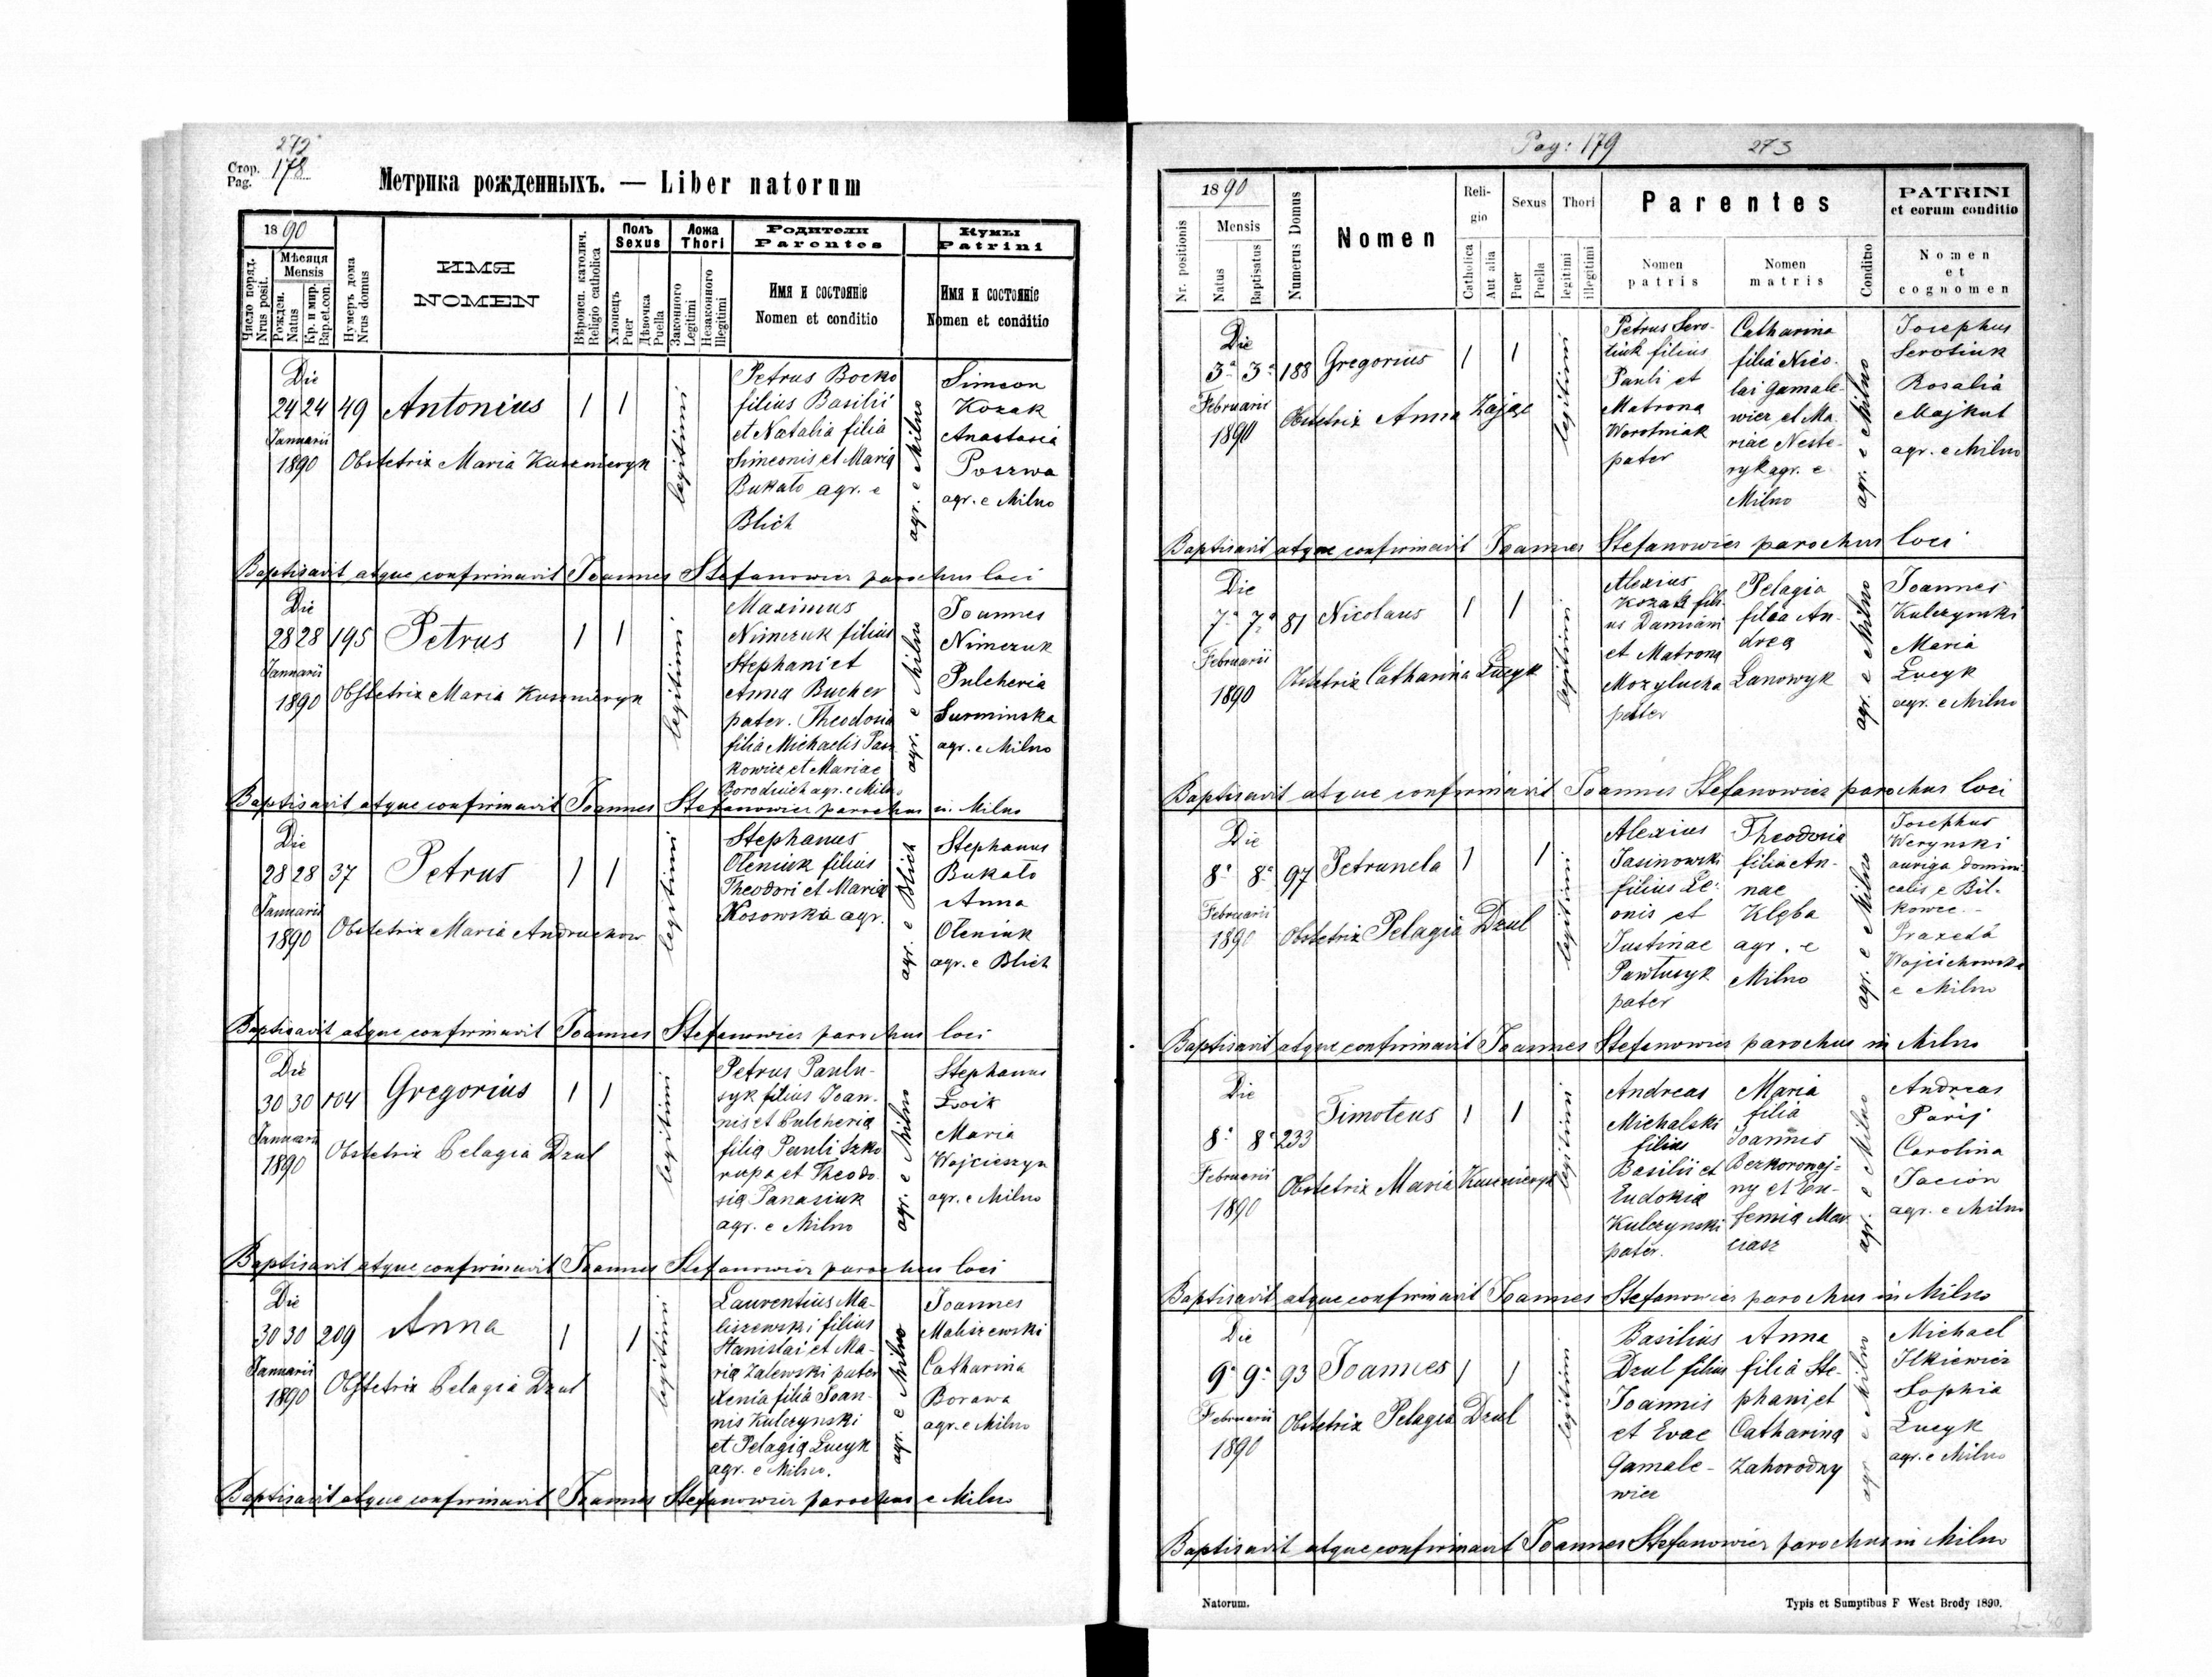 272
Стор. 178
Pag.
Метрика рожденныхъ. — Liber natorum
1890
Число поряд.
Nrus posit.
Мѣсяця
Mensis
Рожден.
Natus
Кр. и мир.
Bap.et.con.
Нумеръ дома
Nrus domus
ИМЯ
NOMEN
Вѣроисп. католич.
Religio catholica
Полъ
Sexus
Хлопецъ
Puer
Дѣвочка
Puella
Ложа
Thori
Законного
Legitimi
Незаконного
Illegitimi
Родители
Parentes
Имя и состоянiе
Nomen et conditio
Кумы
Patrini
Имя и состоянiе
Nomen et conditio
Die
24 24 49 Antonius 1 1
Januarii
1890 Obstetrix Maria Kuszmieryk
legitimi
Petrus Bocko
filius Basilii
et Natalia filia
Simeonis et Maria
Bukato agr. e
Blich
agr. e Milno
Simeon
Kozak
Anastasia
Poszwa
agr. e Milno
Baptisavit atque confirmavit Joannes Stefanowicz parochus loci
Die
28 28 195 Petrus 1 1
Januarii
1890 Obstetrix Maria Kuszmieryk
legitimi
Maximus
Nimczuk filius
Stephani et
Anna Bucher
pater. Theodosia
filia Michaelis Pasz
kowicz et Mariae
Borodiuch agr. e Milno
agr. e Milno
Joannes
Nimczuk
Pulcheria
Surminska
agr. e Milno
Baptisavit atque confirmavit Joannes Stefanowicz parochus in Milno
Die
28 28 37 Petrus 1 1
Januarii
1890 Obstetrix Maria Andruchow
legitimi
Stephanus
Oleniuk filius
Theodori et Maria
Kosowska agr.
agr. e Blich
Stephanus
Bukato
Anna
Oleniuk
agr. e Blich
Baptisavit atque confirmavit Joannes Stefanowicz parochus loci
Die
30 30 104 Gregorius 1 1
Januarii
1890 Obstetrix Pelagia Dzul
legitimi
Petrus Paulu-
syk filius Joan-
nis et Pulcheria
filia Pauli Szko
rupa et Theodo
sia Panasiuk
agr. e Milno
agr. e Milno
Stephanus
Łoik
Maria
Wojcieszyn
agr. e Milno
Baptisavit atque confirmavit Joannes Stefanowicz parochus loci
Die
30 30 209 Anna 1 1
Januarii
1890 Obstetrix Pelagia Dzul
legitimi
Laurentius Ma-
liszewski filius
Stanislai et Ma-
ria Zalewski pater
Xenia filia Joan-
nis Kulczynski
et Pelagia Łucyk
agr. e Milno.
agr. e Milno
Joannes
Maliszewski
Catharina
Borawa
agr. e Milno
Baptisavit atque confirmavit Joannes Stefanowicz parochus e Milno
Pag: 179 273
1890
Nr. positionis
Mensis
Natus
Baptisatus
Numerus Domus
Nomen
Reli-
gio
Catholica
Aut alia
Sexus
Puer
Puella
Thori
legitimi
illegitimi
Parentes
Nomen
patris
Nomen
matris
Conditio
PATRINI
et eorum conditio
Nomen
et
cognomen
Die
3a 3a 188 Gregorius 1 1
Februarii
1890 Obstetrix Anna Zając
legitimi
Petrus Sero-
tiuk filius
Pauli et
Matrona
Worotniak
pater
Catharina
filia Nico-
lai Gamale-
wicz et Ma-
riae Neste-
ryk agr. e
Milno
agr. e Milno
Josephus
Serotiuk
Rosalia
Majkut
agr. e Milno
Baptisavit atque confirmavit Joannes Stefanowicz parochus loci
Die
7a 7a 81 Nicolaus 1 1
Februarii
1890 Obstetrix Catharina Łucyk
legitimi
Alexius
Kozak fili-
us Damiani
et Matrona
Mozylucha
pater
Pelagia
filia An-
drea
Lanowyk
agr. e Milno
Joannes
Kulczynski
Maria
Łucyk
agr. e Milno
Baptisavit atque confirmavit Joannes Stefanowicz parochus loci
Die
8a 8a 97 Petrunela 1 1
Februarii
1890 Obstetrix Pelagia Dzul
legitimi
Alexius
Jasinowski
filius Le-
onis et
Justinae
Pawlusyk
pater
Theodosia
filia An-
nae
Klęba
agr. e
Milno
agr. e Milno
Josephus
Werynski
auriga domini
calis e Bił-
kowce.-
Praxeda
Wojcichowska
e Milno
Baptisavit atque confirmavit Joannes Stefanowicz parochus in Milno
Die
8a 8a 233 Timoteus 1 1
Februarii
1890 Obstetrix Maria Kuszmieryk
legitimi
Andreas
Michalski
filius
Basilii et
Eudokia
Kulczynski
pater.
Maria
filia
Joannis
Bezkoronaj-
ny et Eu-
femia Mar
ciasz
agr. e Milno
Andreas
Parij
Carolina
Jacion
agr. e Milno
Baptisavit atque confirmavit Joannes Stefanowicz parochus in Milno
Die
9a 9a 93 Joannes 1 1
Februarii
1890 Obstetrix Pelagia Dzul
legitimi
Basilius
Dzul filius
Joannis
et Evae
Gamale-
wicz
Anna
filia Ste-
phani et
Catharina
Zahorodny
agr e Milno
Michael
Ilkiewicz
Sophia
Łucyk
agr. e Milno
Baptisavit atque confirmavit Joannes Stefanowicz parochus in Milno
Natorum.
Typis et Sumptibus F West Brody 1890.